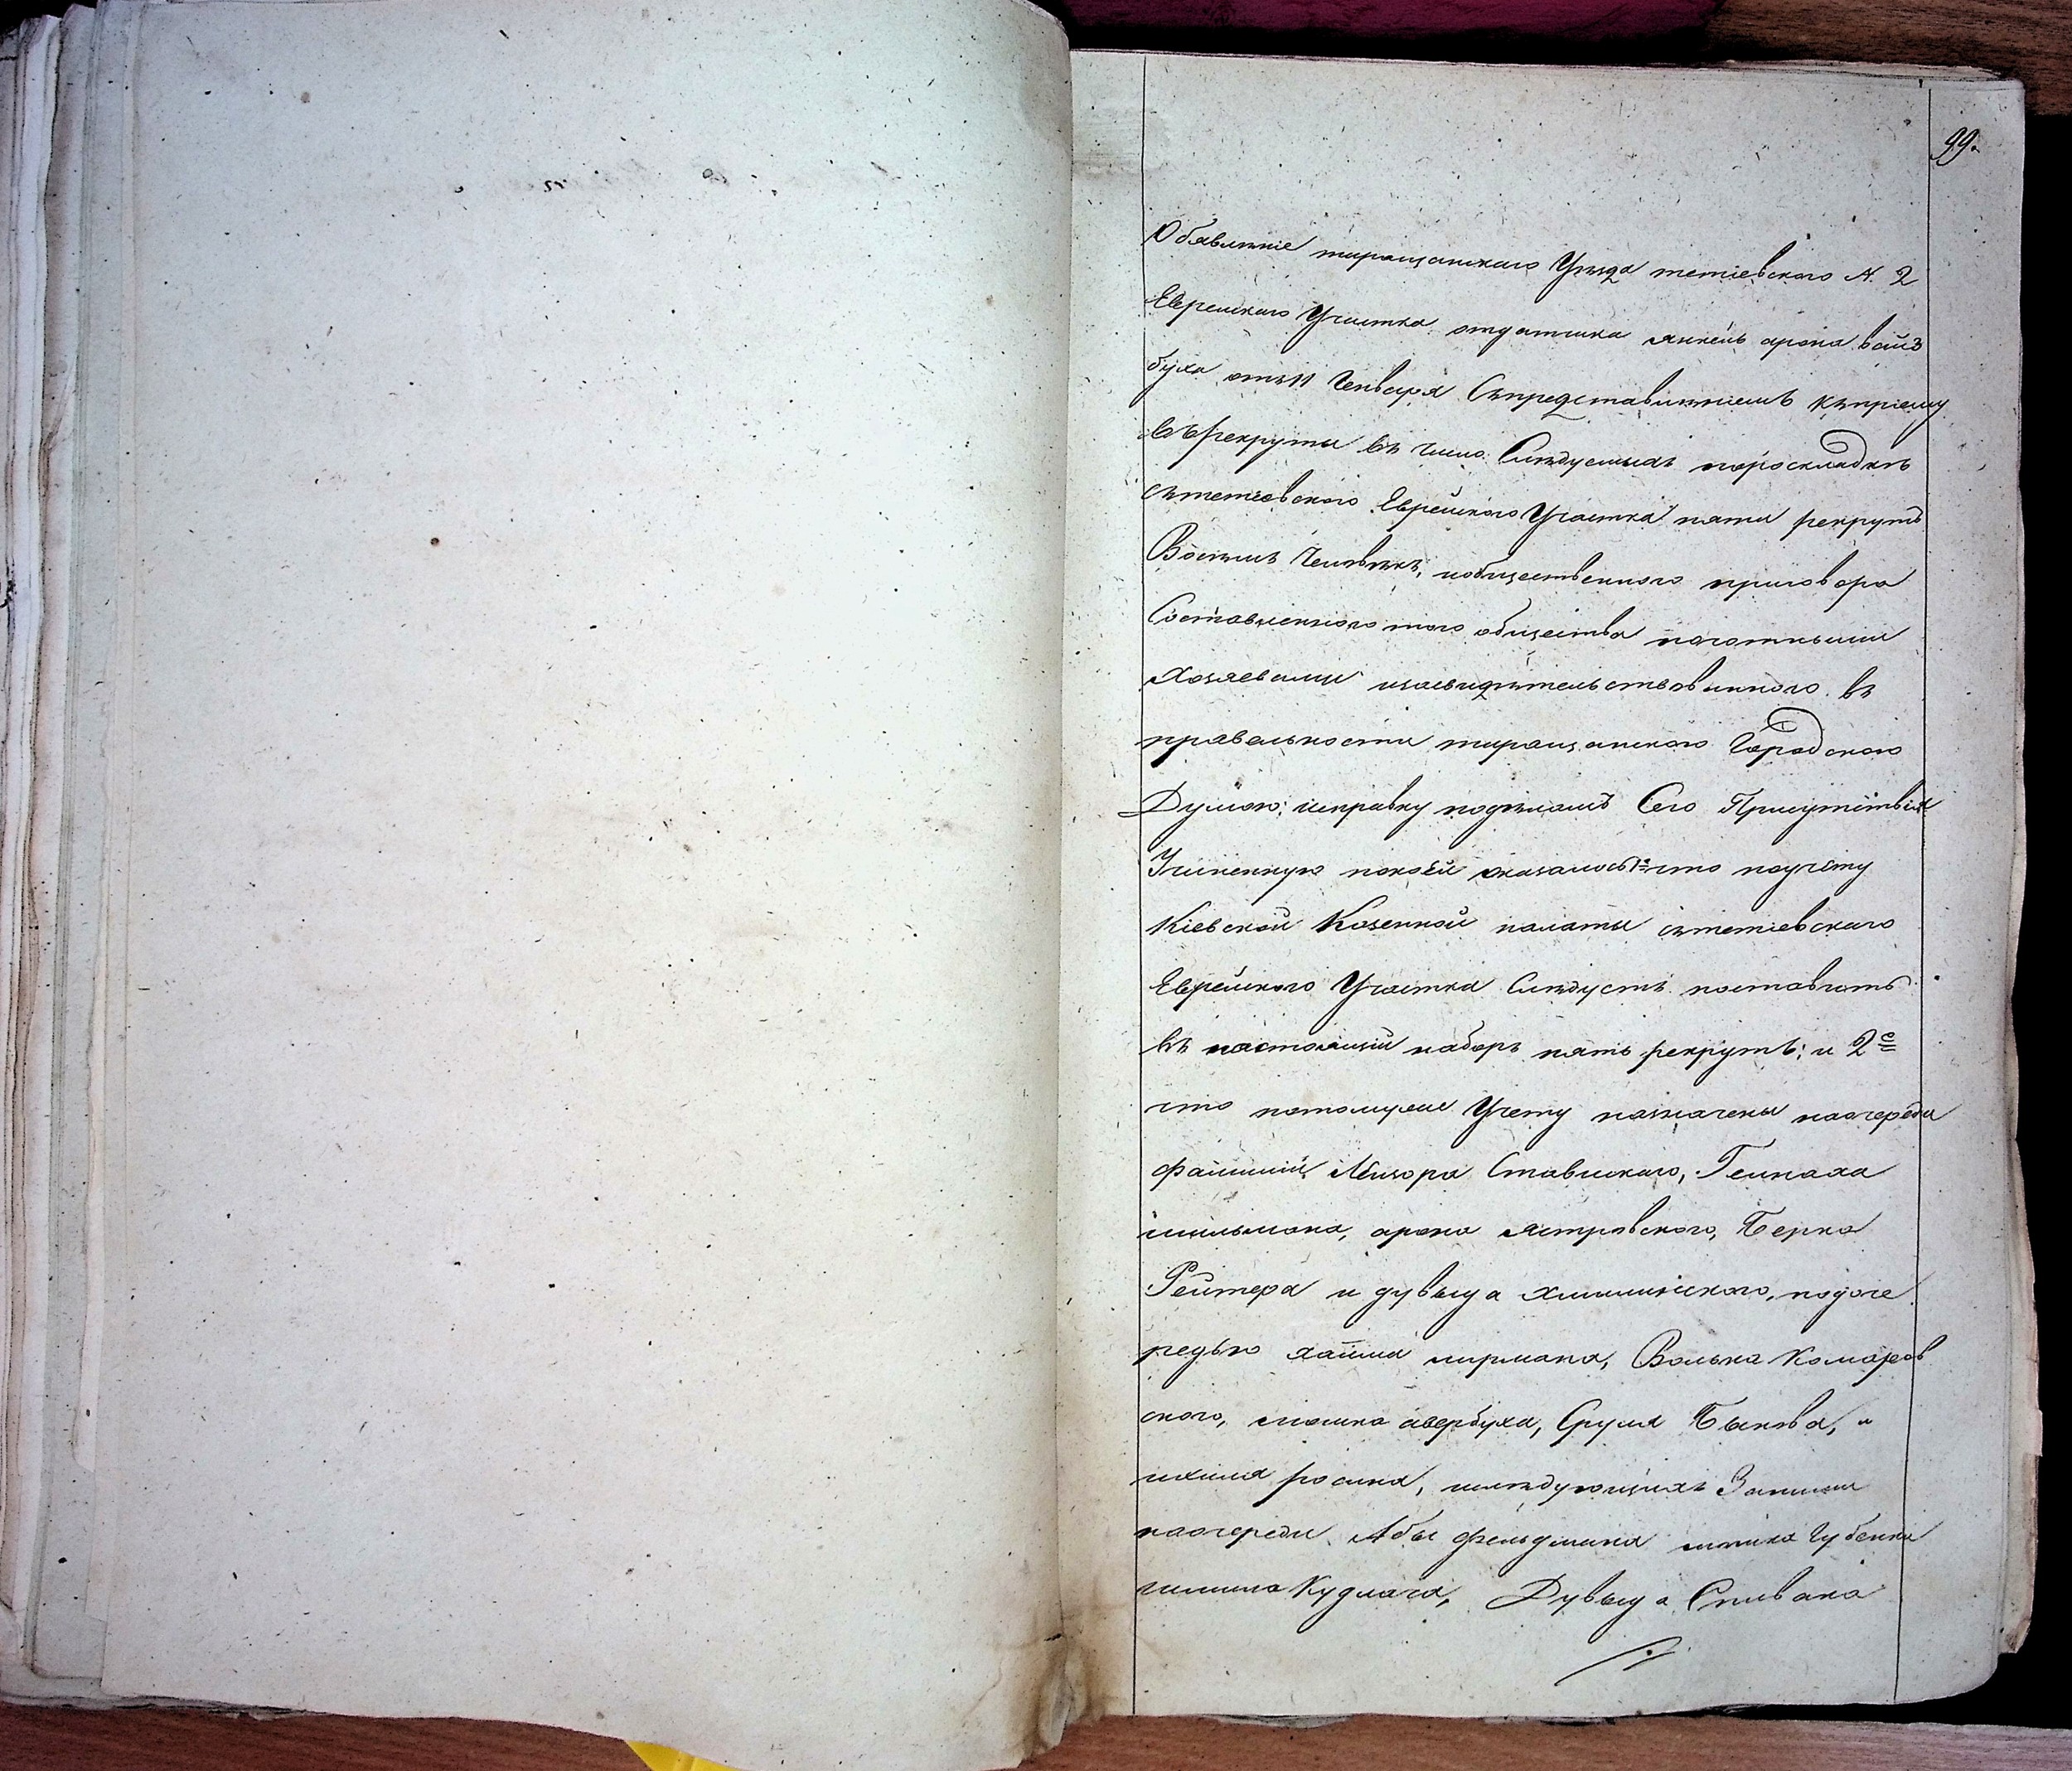 99.
Обявленіе таращанскаго Уѣзда тетіевского N. 2
Еврейскаго Участка отдатчика янкель арона вайз
буха отъ 11 Генваря Съпредставленіемъ къпріему
въ рекруты въ число Слѣдуемыхъ пораскладкѣ
сътетіевского Еврейского Участка пяти рекрутъ
Восемь Человѣкъ, иобщественного приговора
Составленного того общества почотными
Хозяевами изасвидѣтельствованного въ
правельности таращанского Городского
Думою; исправку подѣламъ Сего Присутствія
Учиненную покоей оказалось 1е что поучёту
Кіевской Козенной палаты сътетіевского
Еврейского Участка Слѣдуетъ поставить
въ настоящій наборъ пять рекрутъ; и 2е
что потомуже Учету назначены наочереди
фамиліи Лейзора Ставиского, Гемпаха
шильмана, арона ястровского, Берка
Рейтера и дувыда хмилнского, подоче
редью хаима лирмана, Волька Комаров
ского, мошка авербуха, Сруля Быкова, и
ихиля росина, ислѣдующихъ Заними
наочереди Абы фельдмана ицика Губенка
шлиома Кудлача, Дувыда Спивака